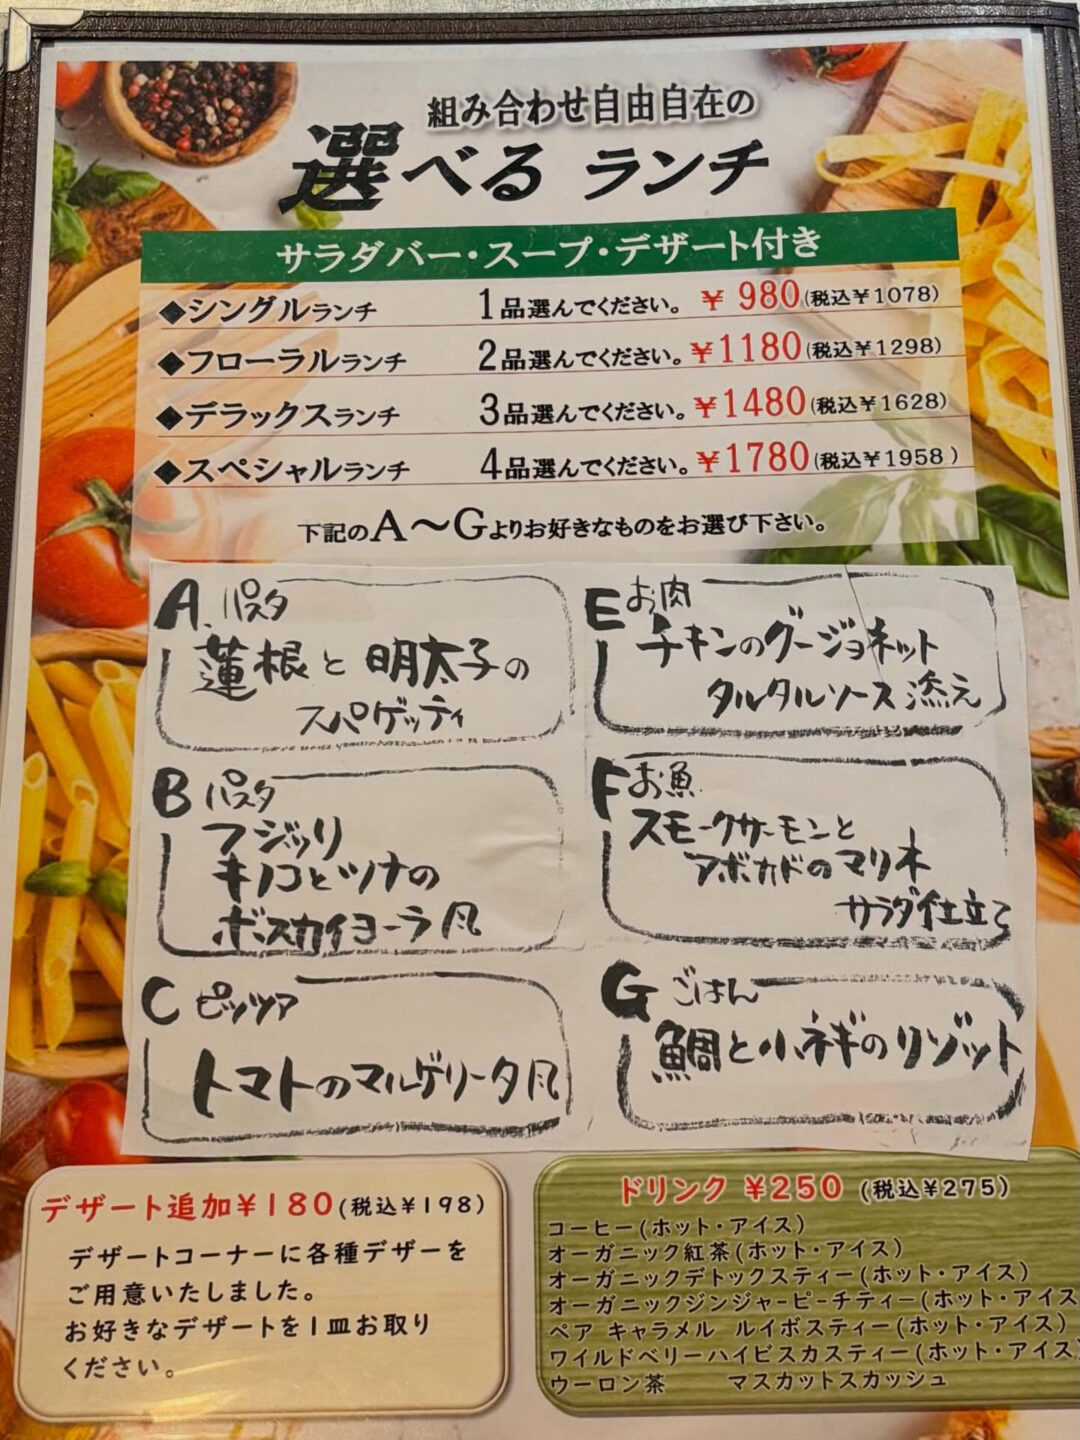 組み合わせ自由自在の
選べる ランチ
サラダバー・スープ・デザート付き
◆シングルランチ 1品選んでください。 ¥ 980(税込¥1078)
◆フローラルランチ 2品選んでください。 ¥1180(税込¥1298)
◆デラックスランチ 3品選んでください。 ¥1480(税込¥1628)
◆スペシャルランチ 4品選んでください。 ¥1780(税込¥1958 )
下記のA～Gよりお好きなものをお選び下さい。
A. パスタ
蓮根と明太子の
スパゲッティ
B パスタ
フジッリ
キノコとツナの
ボスカイヨーラ風
C ピッツァ
トマトのマルゲリータ風
E お肉
チキンのグージョネット
タルタルソース添え
F お魚
スモークサーモンと
アボカドのマリネ
サラダ仕立て
G ごはん
鯛と小ネギのリゾット
デザート追加¥180(税込¥198)
デザートコーナーに各種デザーを
ご用意いたしました。
お好きなデザートを1皿お取り
ください。
ドリンク ¥250 (税込¥275)
コーヒー(ホット・アイス)
オーガニック紅茶(ホット・アイス)
オーガニックデトックスティー(ホット・アイス)
オーガニックジンジャーピーチティー(ホット・アイス
ペア キャラメル ルイボスティー(ホット・アイス)
ワイルドベリーハイビスカスティー(ホット・アイス)
ウーロン茶 マスカットスカッシュ